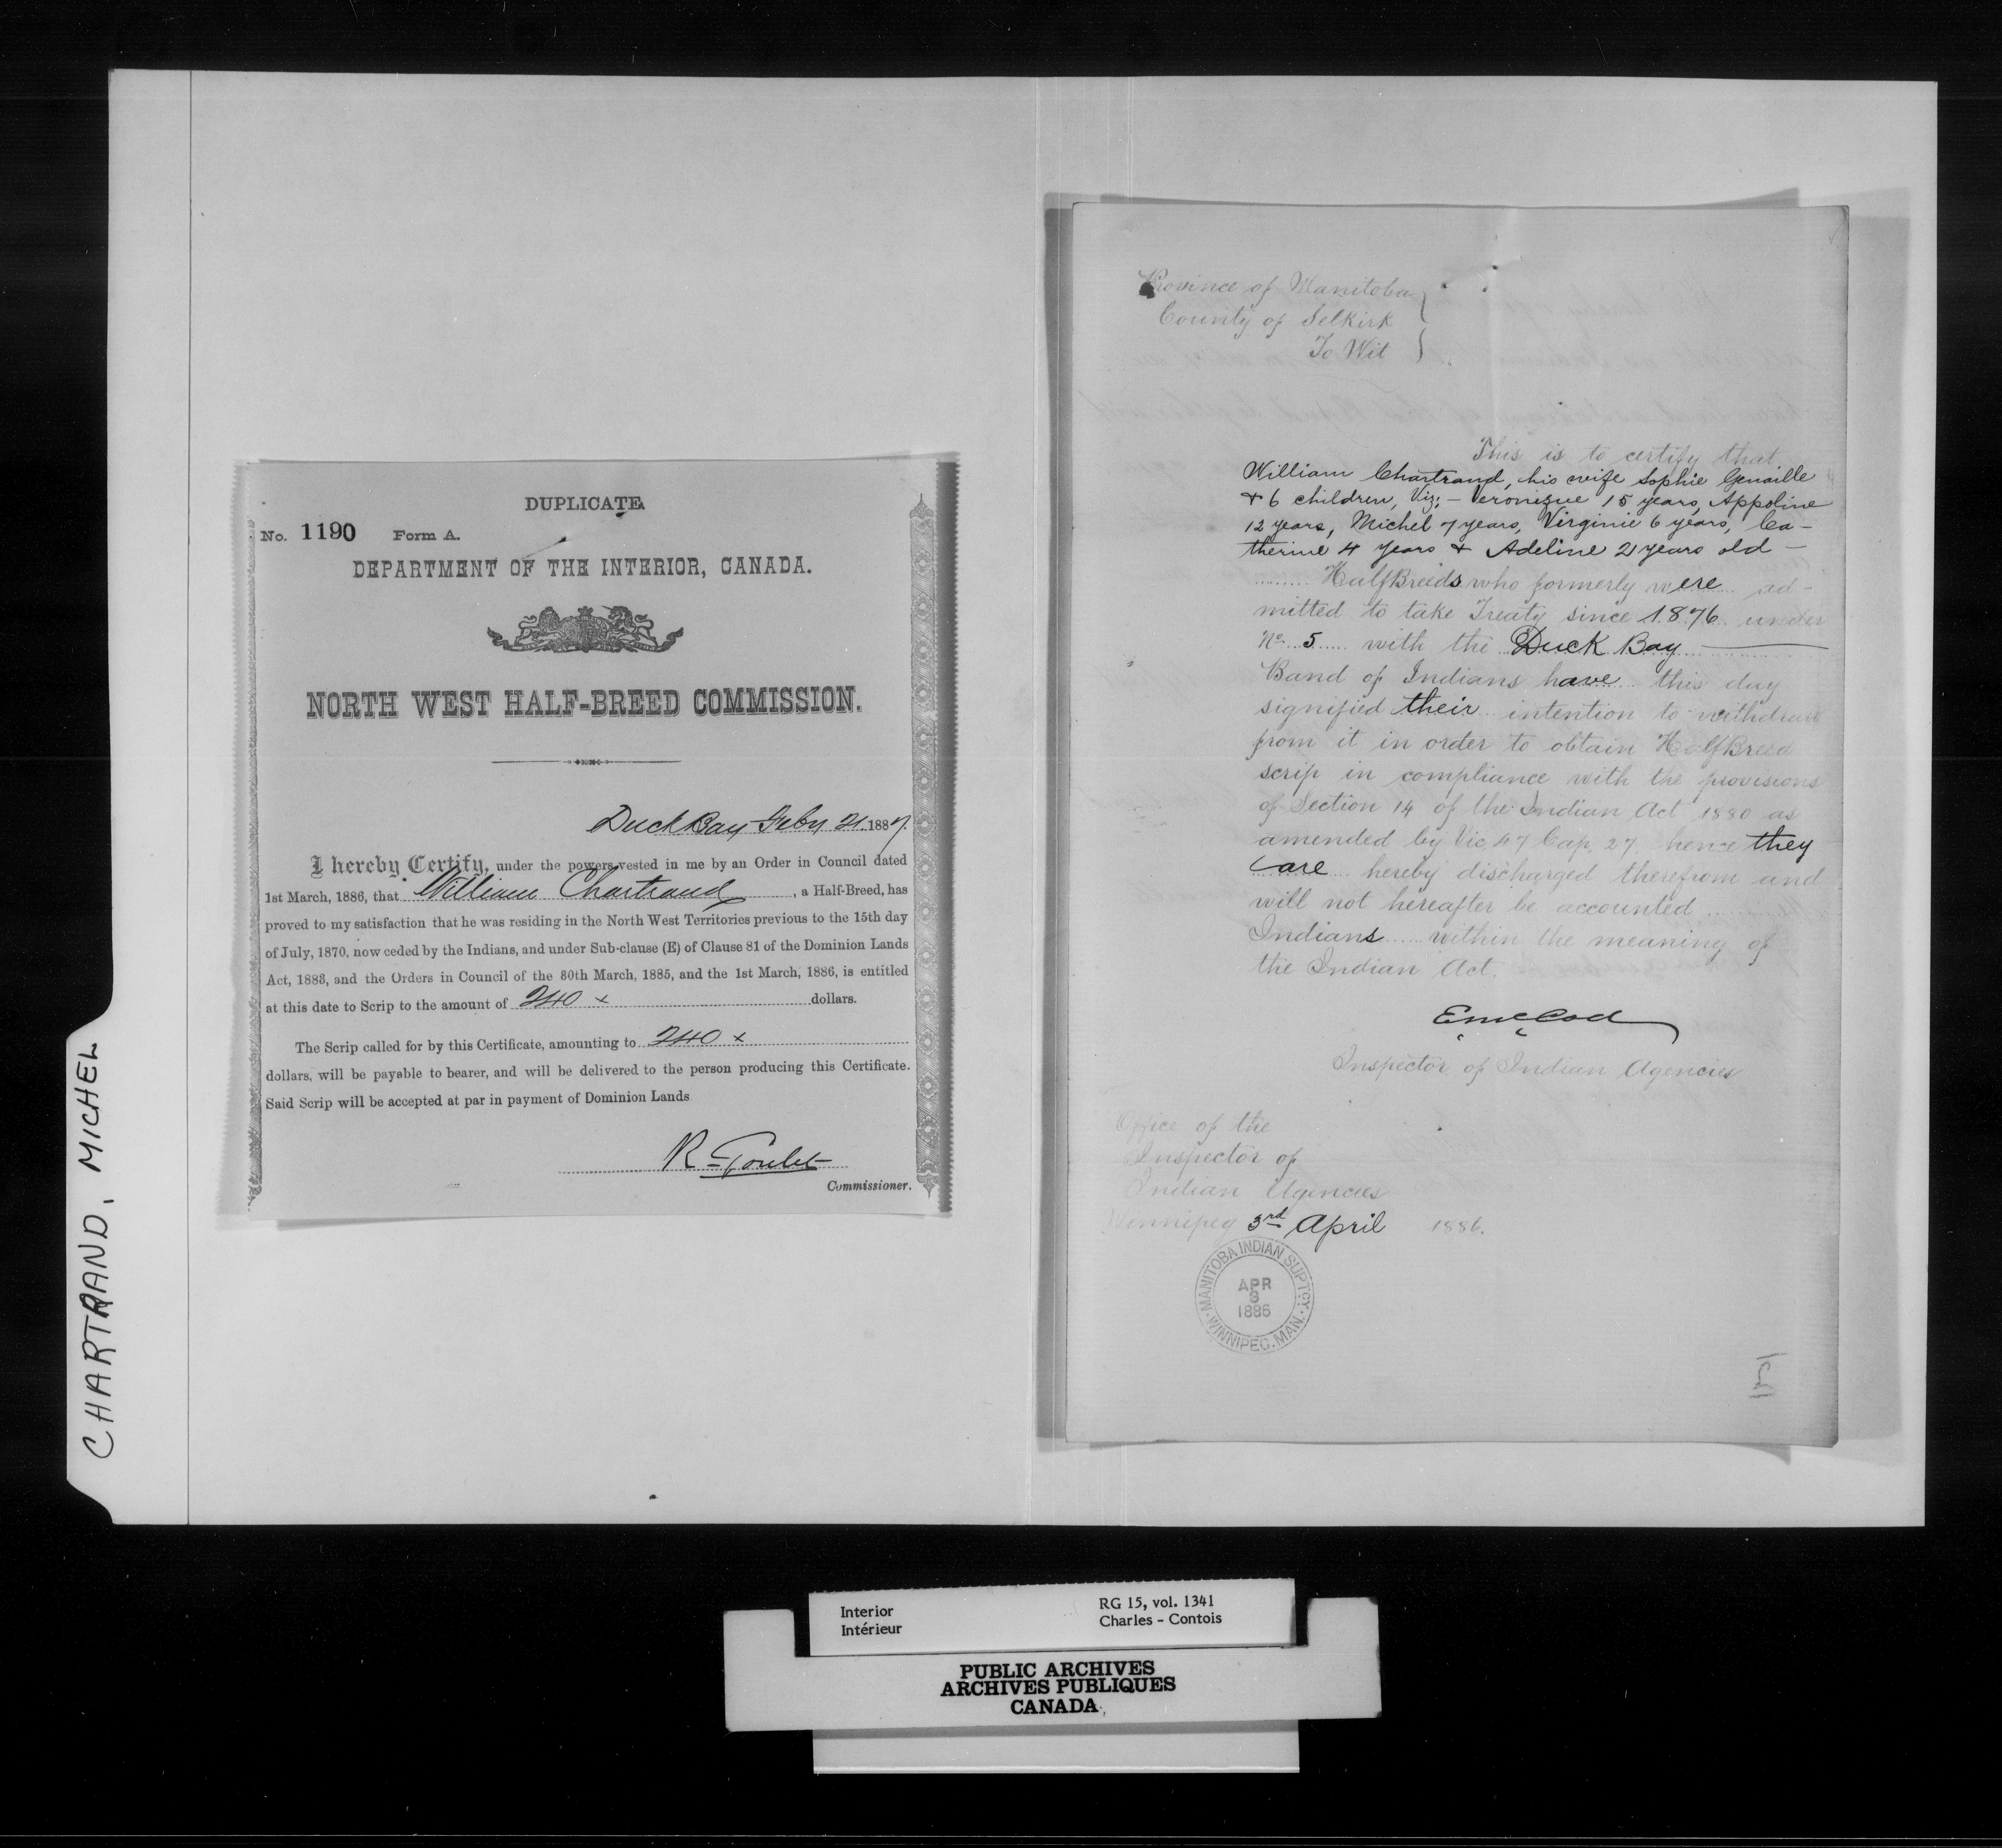 CHARTRAND, MICHEL
DUPLICATE
No. 1190 Form A.
DEPARTMENT OF THE INTERIOR, CANADA.
NORTH WEST HALF-BREED COMMISSION.
Duck Bay Feby 21. 1887.
I hereby Certify, under the powers vested in me by an Order in Council dated
1st March, 1886, that William Chartrand, a Half-Breed, has
proved to my satisfaction that he was residing in the North West Territories previous to the 15th day
of July, 1870, now ceded by the Indians, and under Sub-clause (E) of Clause 81 of the Dominion Lands
Act, 1883, and the Orders in Council of the 30th March, 1885, and the 1st March, 1886, is entitled
at this date to Scrip to the amount of 240 x dollars.
The Scrip called for by this Certificate, amounting to 240 x
dollars, will be payable to bearer, and will be delivered to the person producing this Certificate.
Said Scrip will be accepted at par in payment of Dominion Lands
R Goulet
Commissioner.
Province of Manitoba
County of Selkirk
To Wit
This is to certify that
William Chartrand, his wife Sophie Genaille
& 6 children, Viz; - Veronique 15 years, Appoline
12 years, Michel 7 years, Virginie 6 years, Ca-
therine 4 years & Adeline 2 years old -
HalfBreeds who formerly were ad-
mitted to take Treaty since 1876 under
No. 5 with the Duck Bay
Band of Indians have this day
signified their intention to withdraw
from it in order to obtain HalfBreed
scrip in compliance with the provisions
of Section 14 of the Indian Act 1880 as
amended by Vic 47 Cap, 27 hence they
are hereby discharged therefrom and
will not hereafter be accounted
Indians within the meaning of
the Indian Act.
E McColl
Inspector of Indian Agencies
Office of the
Inspector of
Indian Agencies
Winnipeg 3rd April 1886.
MANITOBA INDIAN SUPTCY.
APR
3
1886
WINNIPEG. MAN.
Interior
Intérieur
RG 15, vol. 1341
Charles - Contois
PUBLIC ARCHIVES
ARCHIVES PUBLIQUES
CANADA